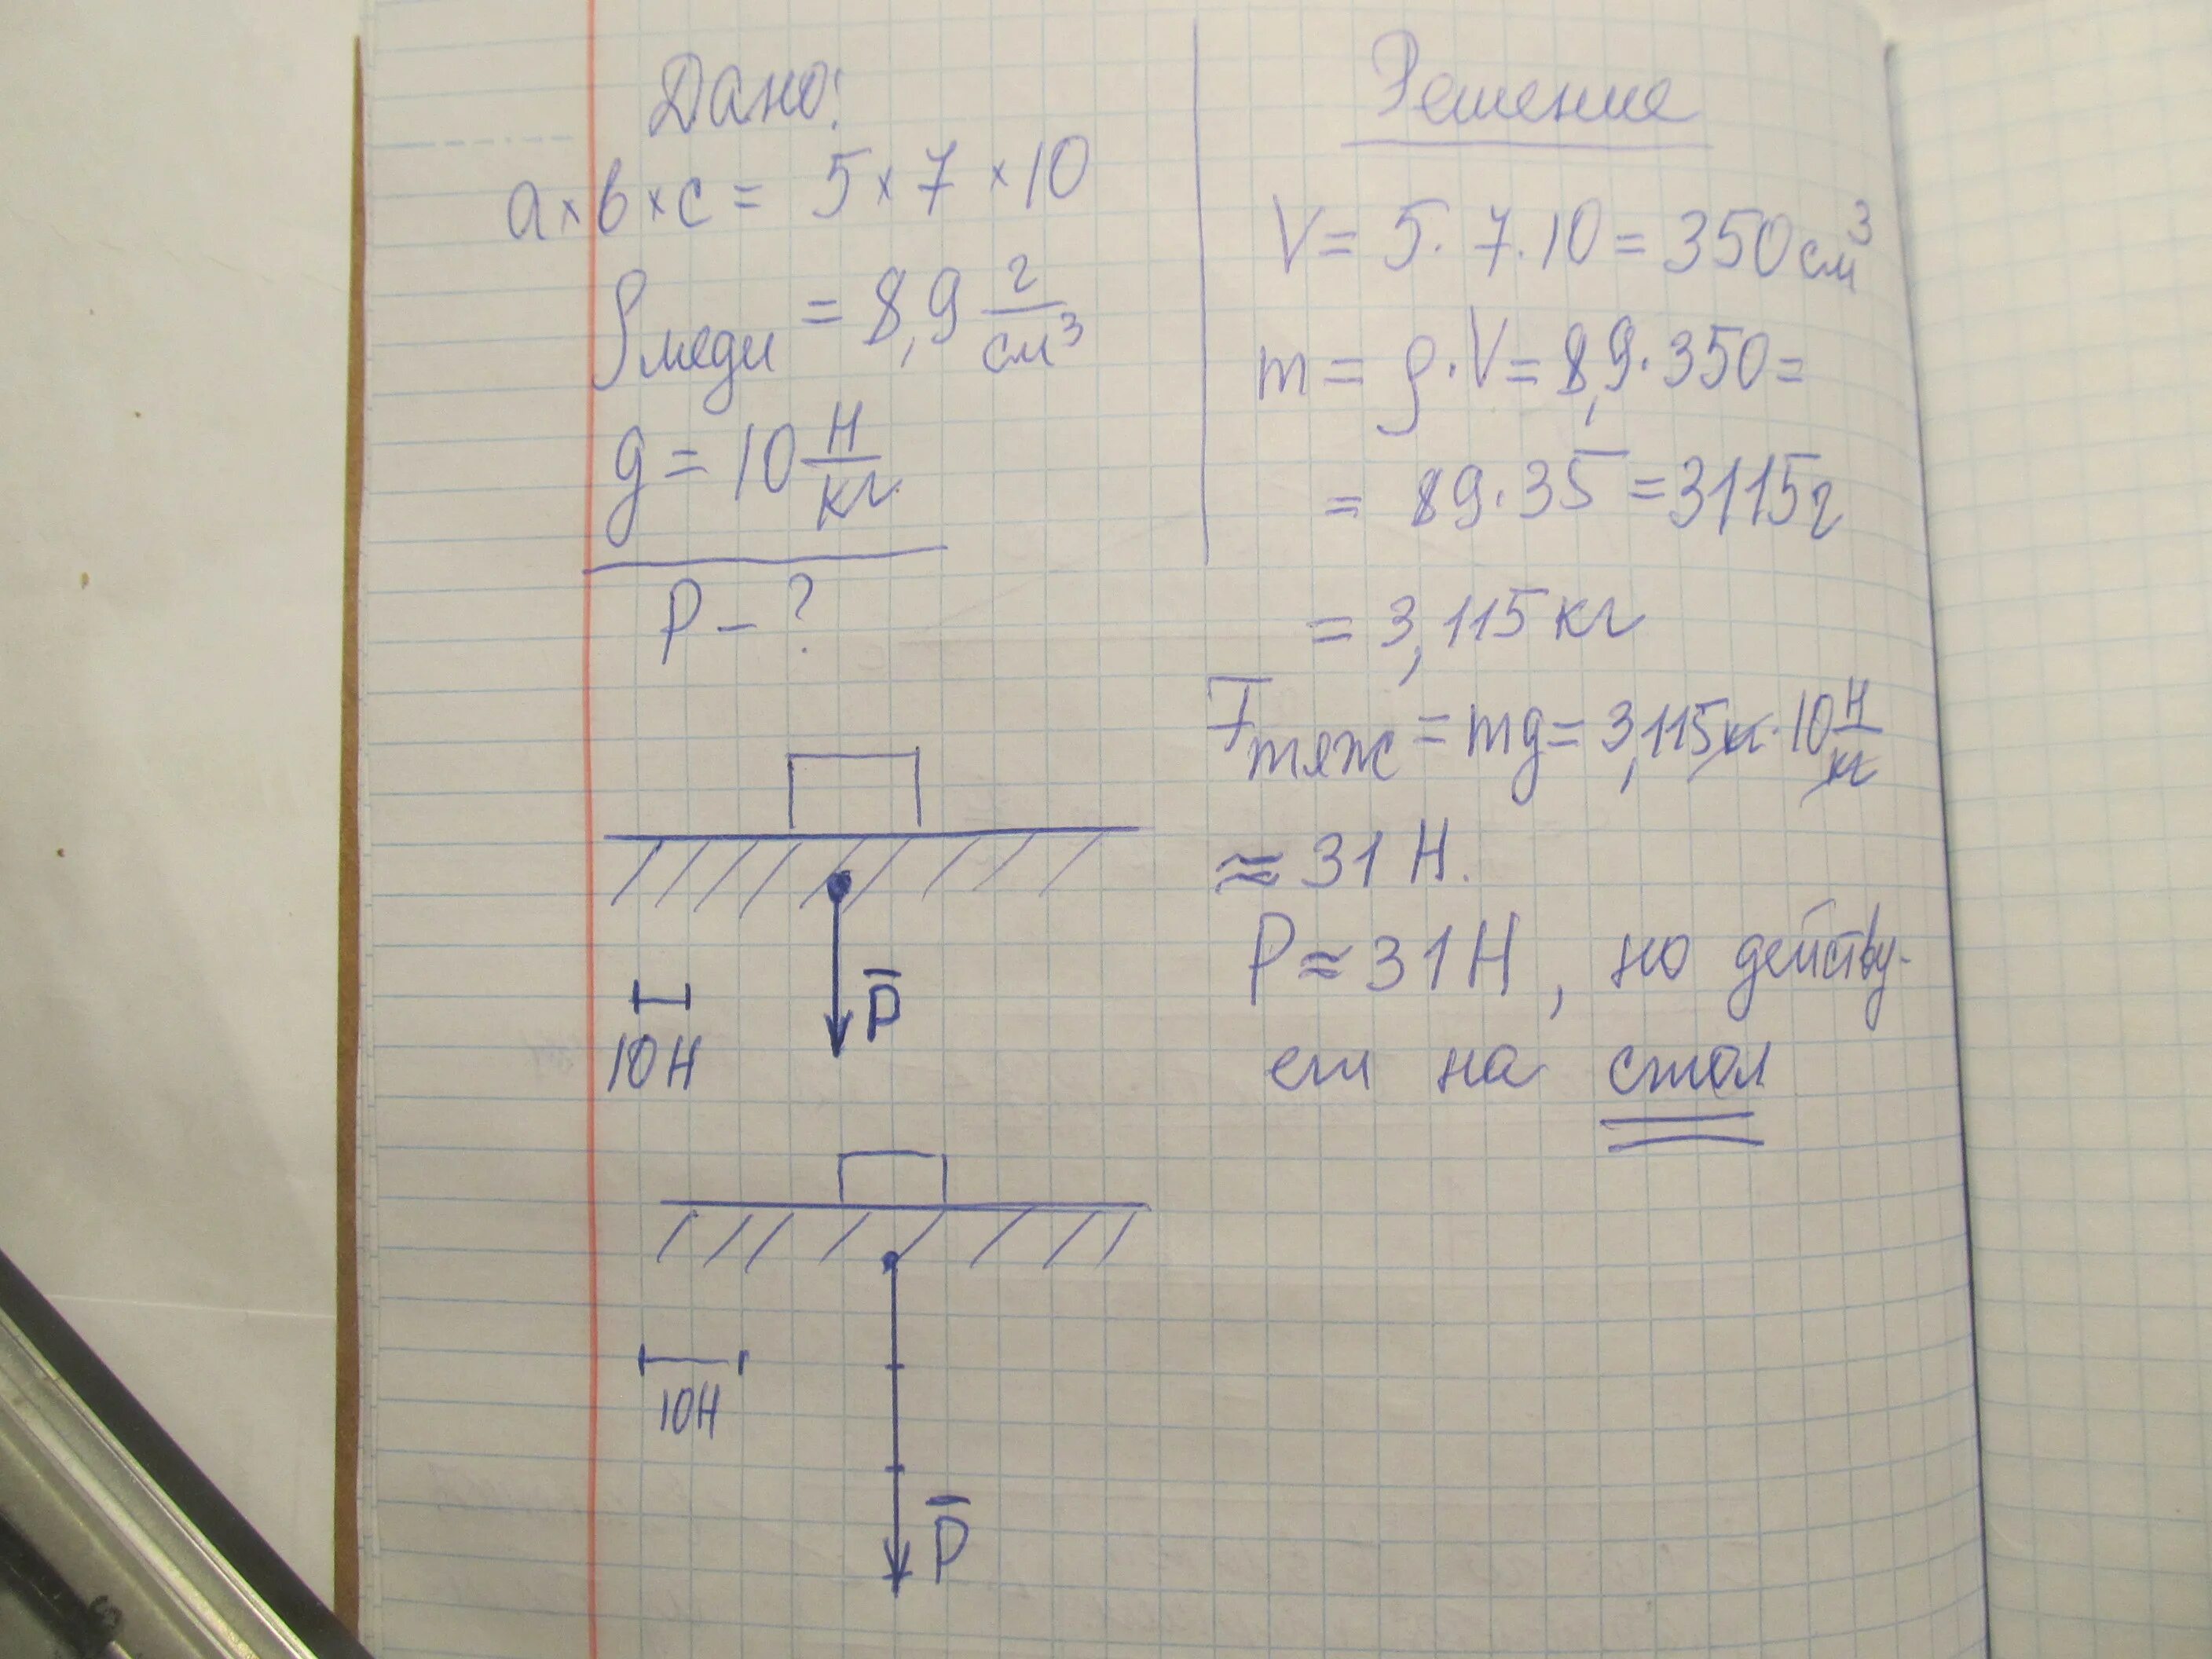 Дано:
a×b×c = 5×7×10
ρ меди = 8,9 г/см³
g = 10 Н/кг
P – ?
10Н
P̄
10Н
P̄
Решение
V = 5·7·10 = 350 см³
m = ρ·V = 8,9·350 =
= 89·35 = 3115г
= 3,115 кг
Fтяж = mg = 3,115кг·10 Н/кг
≈ 31 Н.
P ≈ 31Н, но действу-
ет на стол